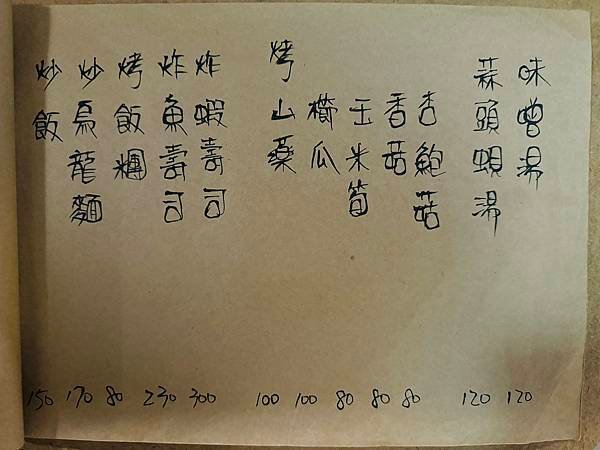 味噌湯 120
蒜頭蜆湯 120
杏鮑菇 80
香菇 80
玉米筍 80
櫛瓜 100
烤山藥 100
炸蝦壽司 300
炸魚壽司 230
烤飯糰 80
炒烏龍麵 170
炒飯 150